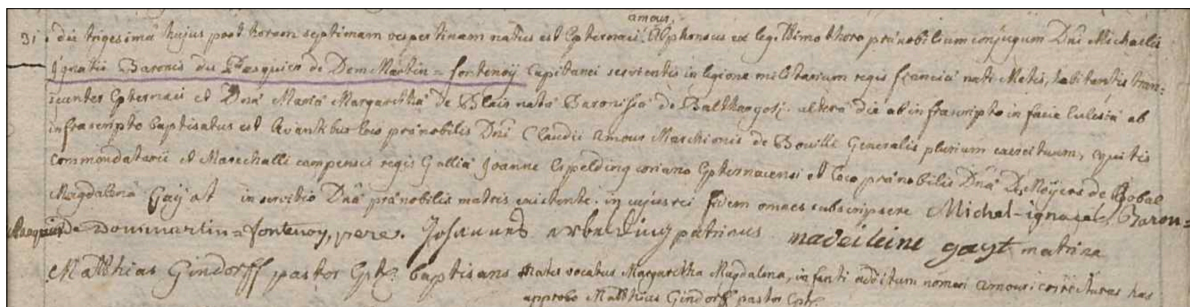 amour
31. die trigesima hujus post horam septimam vespertinam natus est Epternaci Alphonsus ex legittimo thoro prænobilium conjugum Dni Michaelis
Ignatii Baronis du Pasquier de Dom Martin = fontenoy Capitanei servientis in legione militarium regis franciæ nati Metis, habitantis tran=
seunter Epternaci et Dnæ Mariæ Margarethæ de Blais natæ Baronissæ de altera die ab infrascripto in facie Ecclesiæ ab
infrascripto baptisatus est levantibus loco prænobilis Dni Claudii amour Marchionis de Bouilli Generalis plurium exercituum, equitis
commendatarii et Marechalli campensis regis Galliæ Joanne coriario Epternacensi et loco prænobilis Dnæ de
Magdalena Gayat in servitio Dnæ prænobilis matris existente. in cujus rei fidem omnes subscripsere Michel-ignace Baron =
de Dommartin = fontenoy, pere. Johannes patrinus madeileine gayt matrina
Matthias Gindorff pastor Ept. baptisans mater vocatur Margaretha Magdalena, infanti additum nomen amour has
approbo Matthias Gindorff pastor Ept.